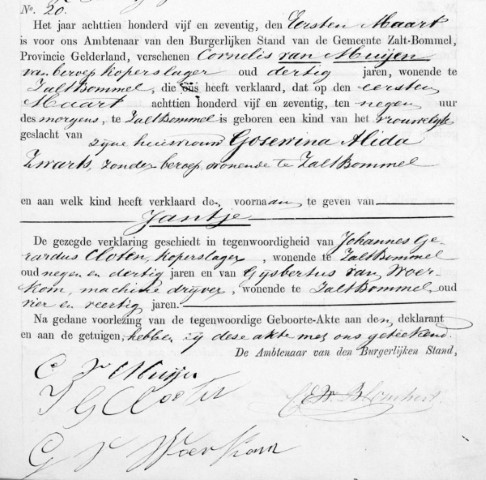 No. 20.
Het jaar achttien honderd vijf en zeventig, den Eersten Maart
is voor ons Ambtenaar van den Burgerlijken Stand van de Gemeente Zalt-Bommel,
Provincie Gelderland, verschenen Cornelis van Muijen
van beroep koperslager oud dertig jaren, wonende te
ZaltBommel, die ons heeft verklaard, dat op den eersten
Maart achttien honderd vijf en zeventig, ten negen uur
des morgens, te ZaltBommel is geboren een kind van het vrouwelijke
geslacht van zijne huisvrouw Gosewina Alida
Zwarts, zonder beroep, wonende te ZaltBommel
en aan welk kind heeft verklaard de voornaam te geven van
Jantje
De gezegde verklaring geschiedt in tegenwoordigheid van Johannes Ge-
rardus Cloten, koperslager, wonende te ZaltBommel
oud negen en dertig jaren en van Gijsbertus van Woer-
kom, machine drijver, wonende te ZaltBommel, oud
vier en veertig jaren.
Na gedane voorlezing van de tegenwoordige Geboorte-Akte aan den declarant
en aan de getuigen, hebben zij deze akte met ons geteekend.
De Ambtenaar van den Burgerlijken Stand,
C V Muijen
J G Clooten
G V Woerkom